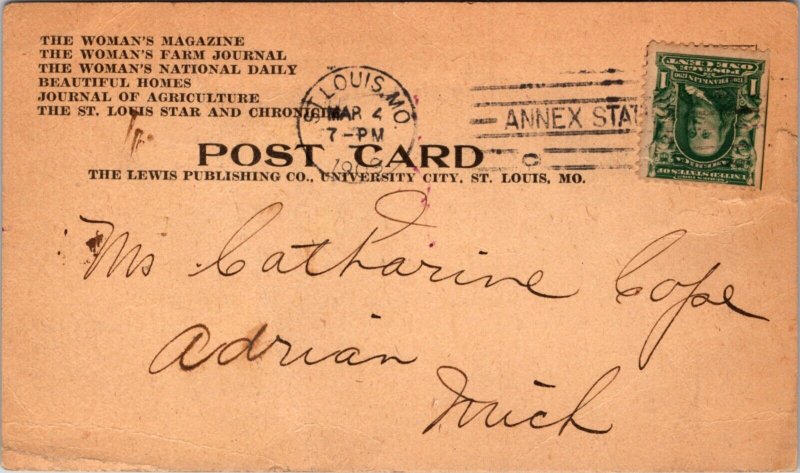 THE WOMAN'S MAGAZINE
THE WOMAN'S FARM JOURNAL
THE WOMAN'S NATIONAL DAILY
BEAUTIFUL HOMES
JOURNAL OF AGRICULTURE
THE ST. LOUIS STAR AND CHRONICLE
ST. LOUIS, MO.
MAR 4
7-PM
ANNEX STA
C
POST CARD
THE LEWIS PUBLISHING CO., UNIVERSITY CITY, ST. LOUIS, MO.
Ms Catharine Cope
Adrian
Mich
UNITED STATES OF
AMERICA
1 1
FRANKLIN
POSTAGE
ONE CENT